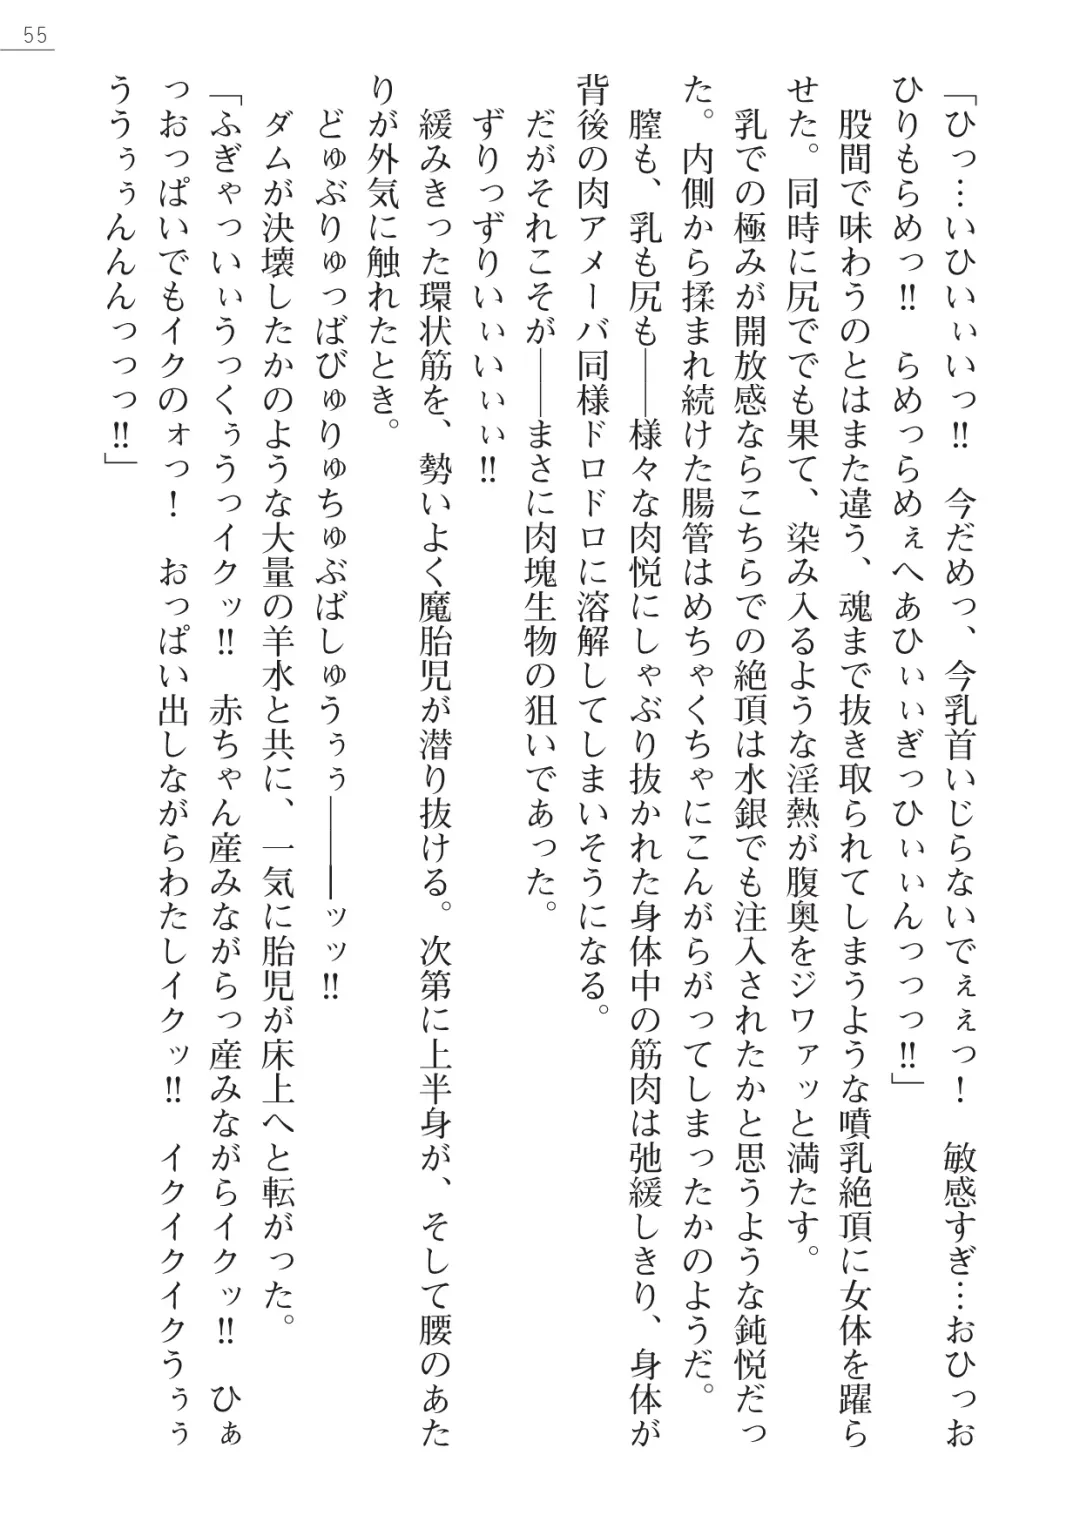 55
「ひっ…いひいぃいっ!! 今だめっ、今乳首いじらないでぇぇっ！ 敏感すぎ…おひっお
ひりもらめっ!! らめっらめぇへあひぃぃぎっひぃぃんっっっ!!」
股間で味わうのとはまた違う、魂まで抜き取られてしまうような噴乳絶頂に女体を躍ら
せた。同時に尻ででも果て、染み入るような淫熱が腹奥をジワァッと満たす。
乳での極みが開放感ならこちらでの絶頂は水銀でも注入されたかと思うような鈍悦だっ
た。内側から揉まれ続けた腸管はめちゃくちゃにこんがらがってしまったかのようだ。
膣も、乳も尻も――様々な肉悦にしゃぶり抜かれた身体中の筋肉は弛緩しきり、身体が
背後の肉アメーバ同様ドロドロに溶解してしまいそうになる。
だがそれこそが――まさに肉塊生物の狙いであった。
ずりっずりいぃいぃぃ!!
緩みきった環状筋を、勢いよく魔胎児が潜り抜ける。次第に上半身が、そして腰のあた
りが外気に触れたとき。
どゅぶりゅっばびゅりゅちゅぶばしゅうぅぅ―――ッッ!!
ダムが決壊したかのような大量の羊水と共に、一気に胎児が床上へと転がった。
「ふぎゃっいぃうっくぅうっイクッ!! 赤ちゃん産みながらっ産みながらイクッ!! ひぁ
っおっぱいでもイクのォっ！ おっぱい出しながらわたしイクッ!! イクイクイクうぅぅ
ううぅぅんんんっっっ!!」